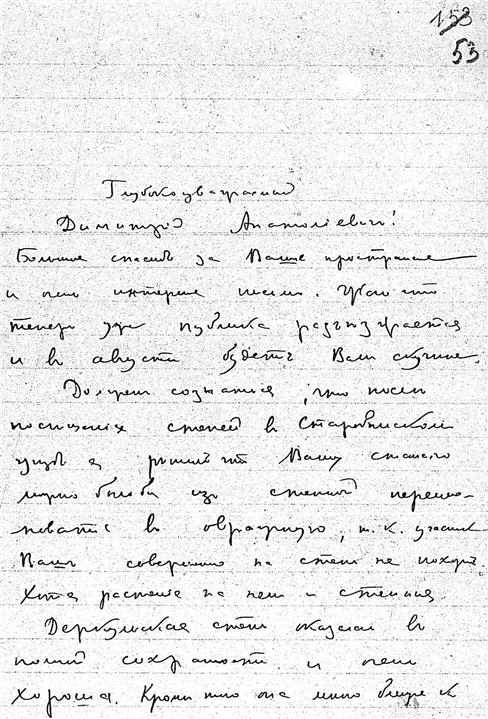 153
53
Глубокоуважаемый
Димитрий Анатолiевич!
Большое спасибо за Ваше пространное
и очень интересное письмо. что
теперь уже публика разъезжается
и в августе будетъ Вам скучнее.
Должен сознаться, что после
посещенiя степей в Старобельском
уезде я решил что Вашу станцию
можно было бы из степной переиме-
новать в овражную, т. к. участок
Вашъ совершенно на степь не похож.
Хотя растенья на нем и степныя.
Деркульская степь оказалась в
полной сохранности и очень
хороша. Кроме того она мне ближе к